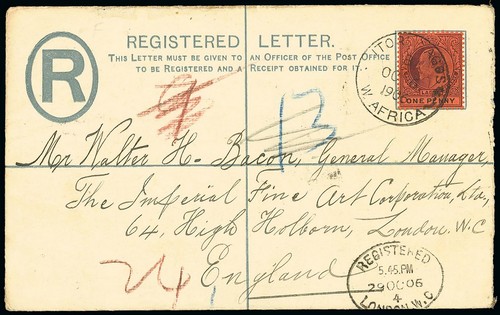 REGISTERED LETTER.
THIS LETTER MUST BE GIVEN TO AN OFFICER OF THE POST OFFICE
TO BE REGISTERED AND A RECEIPT OBTAINED FOR IT.
R
OC
190
W. AFRICA
ONE PENNY
13
Mr Walter H. Bacon, General Manager,
The Imperial Fine Art Corporation, Ltd.,
64, High Holborn, London. W.C
England
REGISTERED
5.45.PM
29 OC 06
4
LONDON. W.C